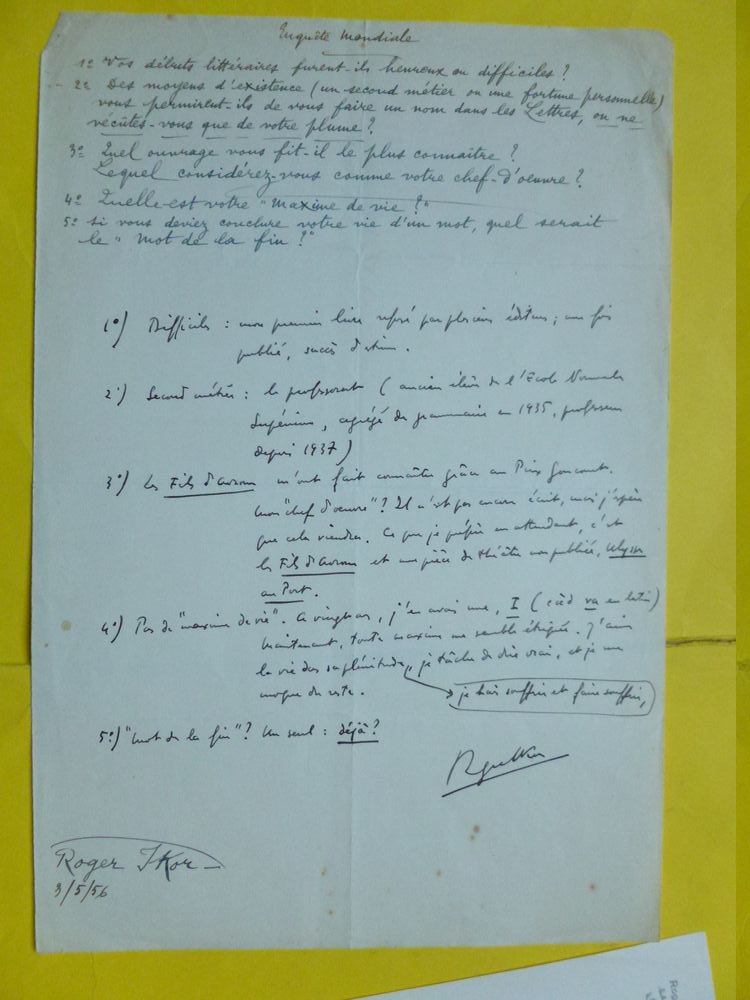 Enquête Mondiale
1º Vos débuts littéraires furent-ils heureux ou difficiles ?
2º Des moyens d'existence (un second métier ou une fortune personnelle)
vous permirent-ils de vous faire un nom dans les Lettres, ou ne
vécûtes-vous que de votre plume ?
3º Quel ouvrage vous fit-il le plus connaître ?
Lequel considérez-vous comme votre chef-d'oeuvre ?
4º Quelle est votre "Maxime de vie ?"
5º Si vous deviez conclure votre vie d'un mot, quel serait
le "Mot de la fin ?"
1º) Difficiles : mon premier livre refusé par plusieurs éditeurs ; une fois
publié, succès d'estime.
2º) Second métier : le professorat (ancien élève de l'Ecole Normale
Supérieure, agrégé de grammaire en 1935, professeur
depuis 1937)
3º) Les Fils d'Avrom m'ont fait connaître grâce au Prix Goncourt.
Mon "chef d'oeuvre" ? Il n'est pas encore écrit, mais j'espère
que cela viendra. Ce que je préfère en attendant, c'est
les Fils d'Avrom et une pièce de théâtre non publiée, Ulysse
au Port.
4º) Pas de "maxime de vie". A vingt ans, j'en avais une, I (càd va en latin)
Maintenant, toute maxime me semble étriquée. J'aime
la vie dans sa plénitude, je tâche de dire vrai, et je me
moque du reste.
je hais souffrir et faire souffrir,
5º) "Mot de la fin" ? Un seul : déjà ?
Roger Ikor
Roger Ikor
3/5/56